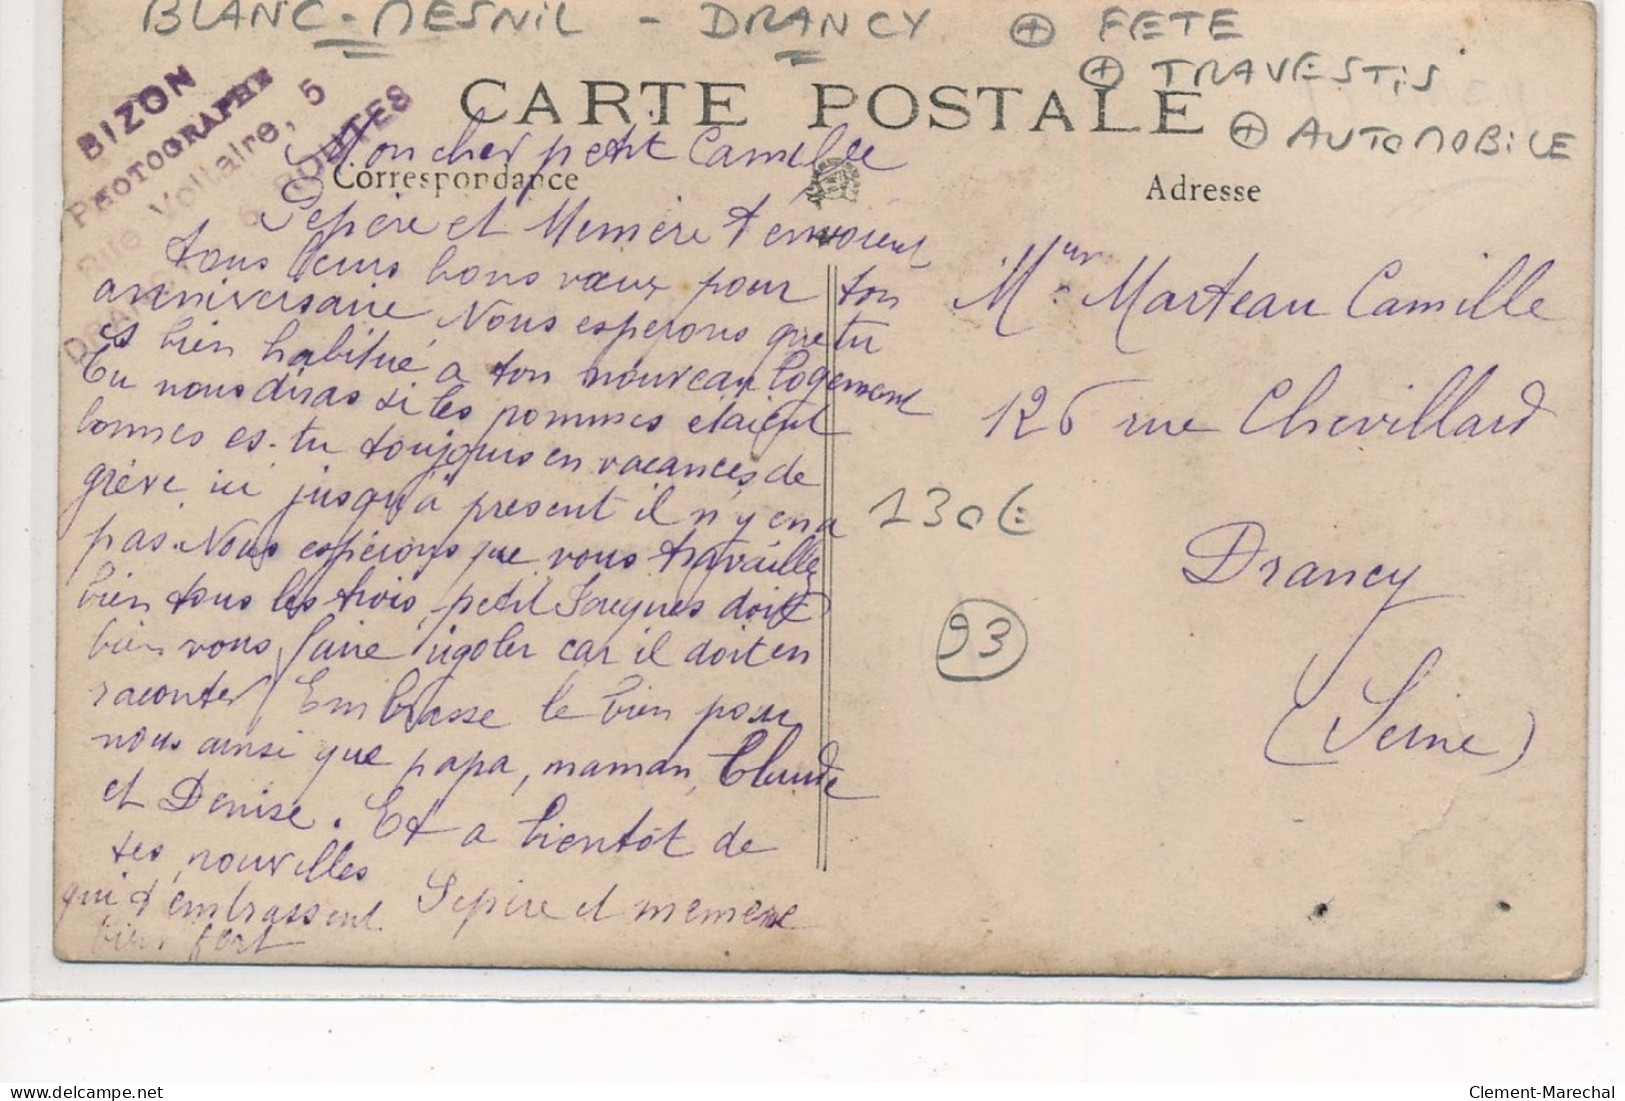 BLANC-MESNIL - DRANCY ⊕ FETE
⊕ TRAVESTIS
⊕ AUTOMOBILE
BIZON
PHOTOGRAPHE
Rue Voltaire, 5
6 ROUTES
DRANCY
CARTE POSTALE
Correspondance
Adresse
Mon cher petit Camille
Pepère et Memère t'envoient
tous leurs bons vœux pour ton
anniversaire. Nous esperons que tu
es bien habitué a ton nouveau logement
Tu nous diras si les pommes etaient
bonnes es-tu toujours en vacances de
grève ici jusqu'à present il n'y en a
pas. Nous espérons que vous travaillez
bien tous les trois, petit Jacques doit
bien vous faire rigoler car il doit en
raconter Embrasse le bien pour
nous ainsi que papa, maman, Claude
et Denise. Et a bientôt de
tes nouvelles
qui t'embrassent Pepère et memère
bien fort
Mr Marteau Camille
126 rue Chevillard
Drancy
(Seine)
130€
93
Clement-Marechal